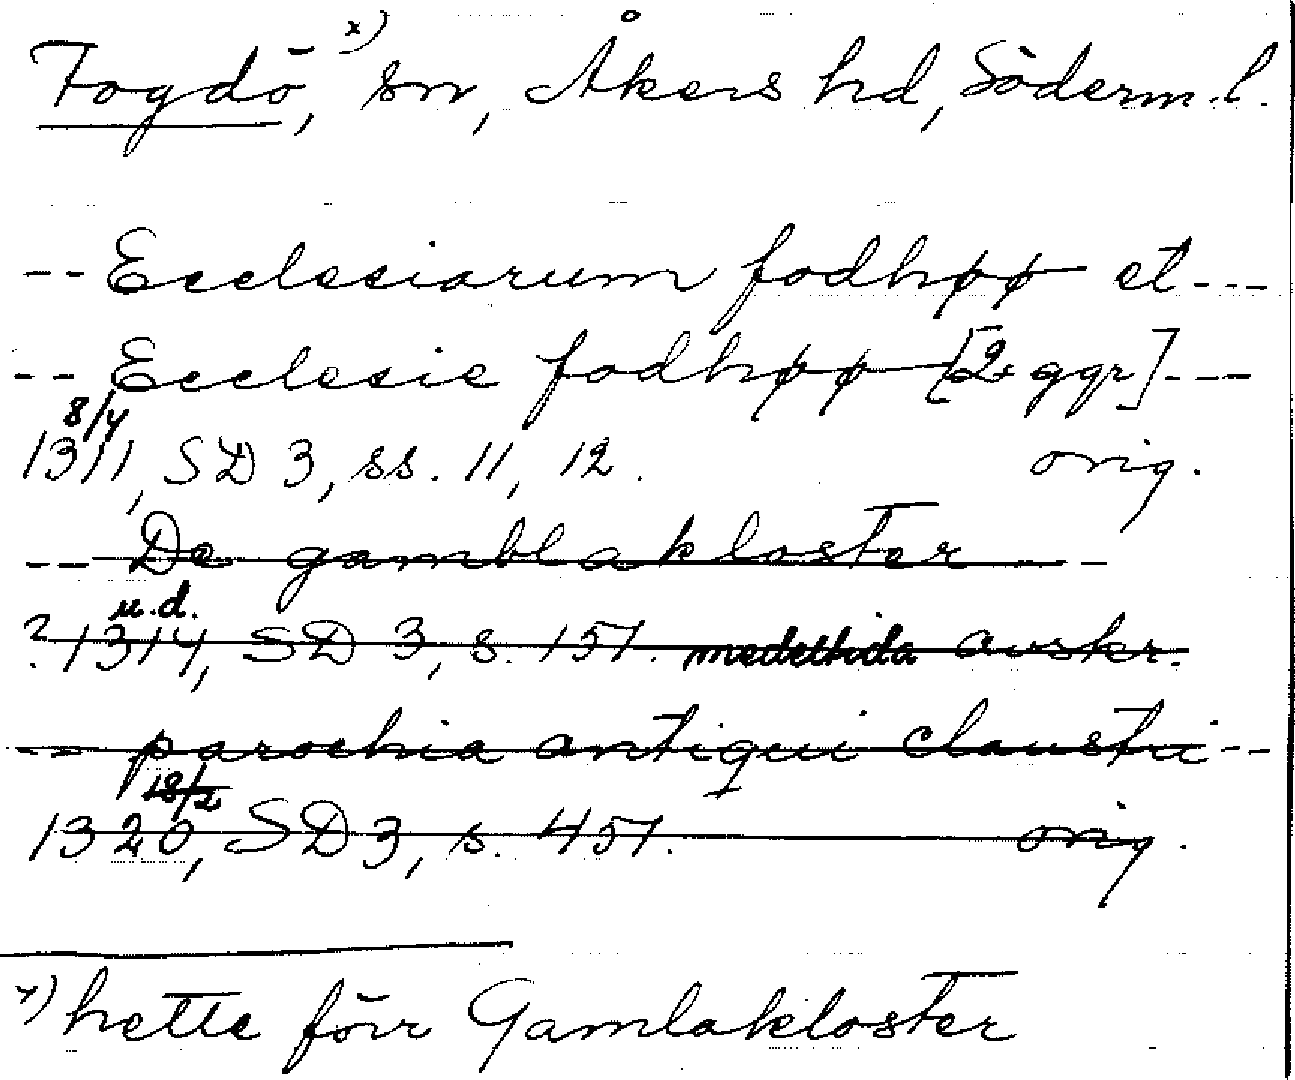 Fogdö, x) sn, Åkers hd, Söderm.l.
-- Ecclesiarum fodhøø et ---
-- Ecclesie fodhøø [2 ggr] ---
8/4
1311, SD 3, ss. 11, 12. orig.
-- De gamblakloster --
u.d.
? 1314, SD 3, s. 151. medeltida avskr.
-- parochia antiqui claustri --
18/2
1320, SD 3, s. 451. orig.
x) hette förr Gamlakloster